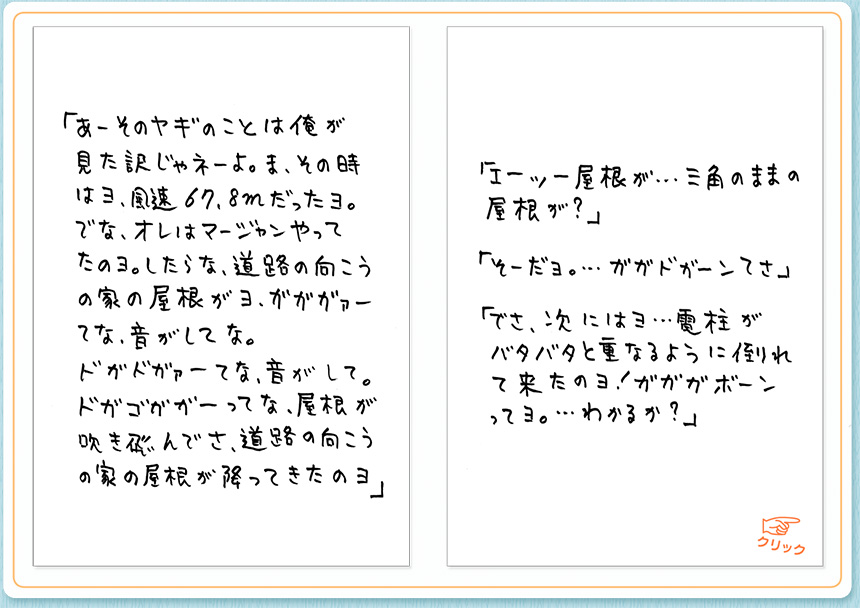 「あーそのヤギのことは俺が
見た訳じゃネーよ。ま、その時
はヨ、風速67.8mだったヨ。
でな、オレはマージャンやって
たのヨ。したらな、道路の向こう
の家の屋根がヨ、ガガガァー
てな、音がしてな。
ドガドガァーてな、音がして。
ドガゴガガーってな、屋根が
吹き飛んでさ、道路の向こう
の家の屋根が降ってきたのヨ」
「エーッー屋根が…三角のままの
屋根が?」
「そーだヨ。…ガガドガーンてさ」
「でさ、次にはヨ…電柱が
バタバタと重なるように倒れ
て来たのヨ!ガガガボーン
ってヨ。…わかるか?」
クリック